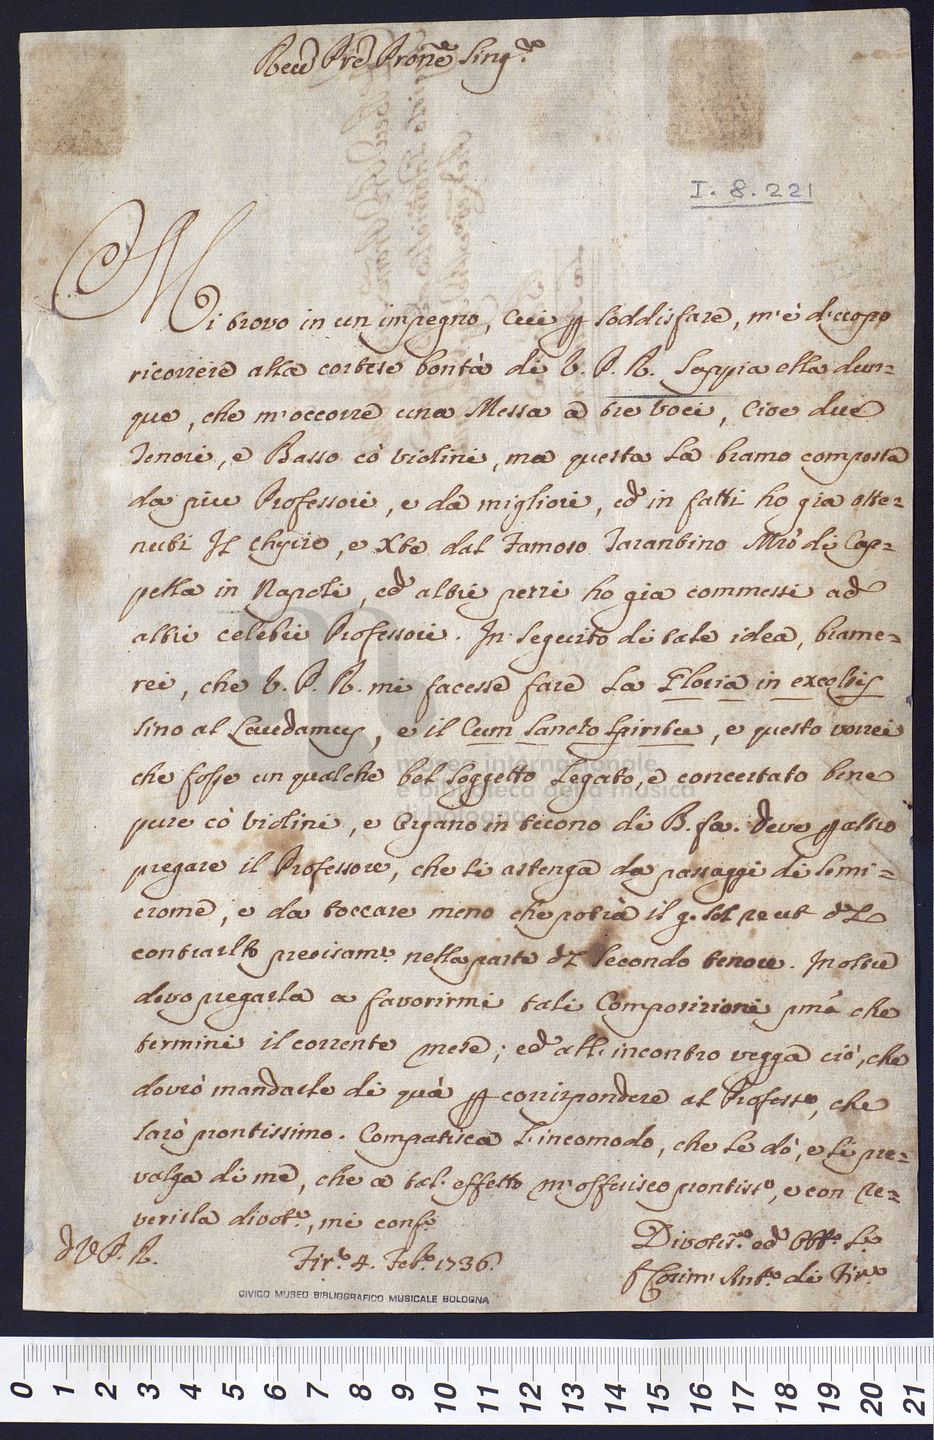 Revd Pre Prone Sing.mo
I. 8. 221
Mi trovo in un impegno, Cui p soddisfare, m'è d'uopo
ricorrere alla cortese bontà di V. P. R. Sappia ella dun=
que, che m'occorre una Messa a tre voci, Cioe due
Tenori, e Basso cò violini, ma questa la bramo composta
da più Professori, e da migliori, ed in fatti ho gia otte=
nuti Il Chyrie, e Xte dal Famoso Tarantino Mro di Cap=
pella in Napoli, ed altri pezzi ho gia commessi ad
altri celebri Professori. In seguito di tale idea, brame=
rei, che V. P. R. mi facesse fare la Gloria in excelsis
sino al Laudamus, e il Cum Sancto Spiritu, e questo vorrei
che fosse un qualche bel Soggetto Legato, e concertato bene
pure cò violini, e Organo in tuono di B. fa. Deve p altro
pregare il Professore, che si astenga da passaggi di Semi=
crome, e da toccare meno che potrà il g. sol re ut del
contrailto precisam.e nella parte del Secondo tenore. In oltre
devo pregarla a favorirmi tali Composizioni pmà che
termini il corrente mese; ed all'incontro vegga ciò, che
dovrò mandarle di quà p corrispondere al Professre, che
sarò prontissimo. Compatisca l'incomodo, che le dò, e si pre=
valga di me, che a tal'effetto m'offerisco prontisso, e con re=
verirla divot.e, mi confo
D V. P. R.
Fir.e 4. Feb.o 1736.
Divotis.mo ed Obb.o Se.
f Cosim' Ant.o di Fir.e
museo internazionale
e biblioteca della musica
di bologna
CIVICO MUSEO BIBLIOGRAFICO MUSICALE BOLOGNA
0 1 2 3 4 5 6 7 8 9 10 11 12 13 14 15 16 17 18 19 20 21